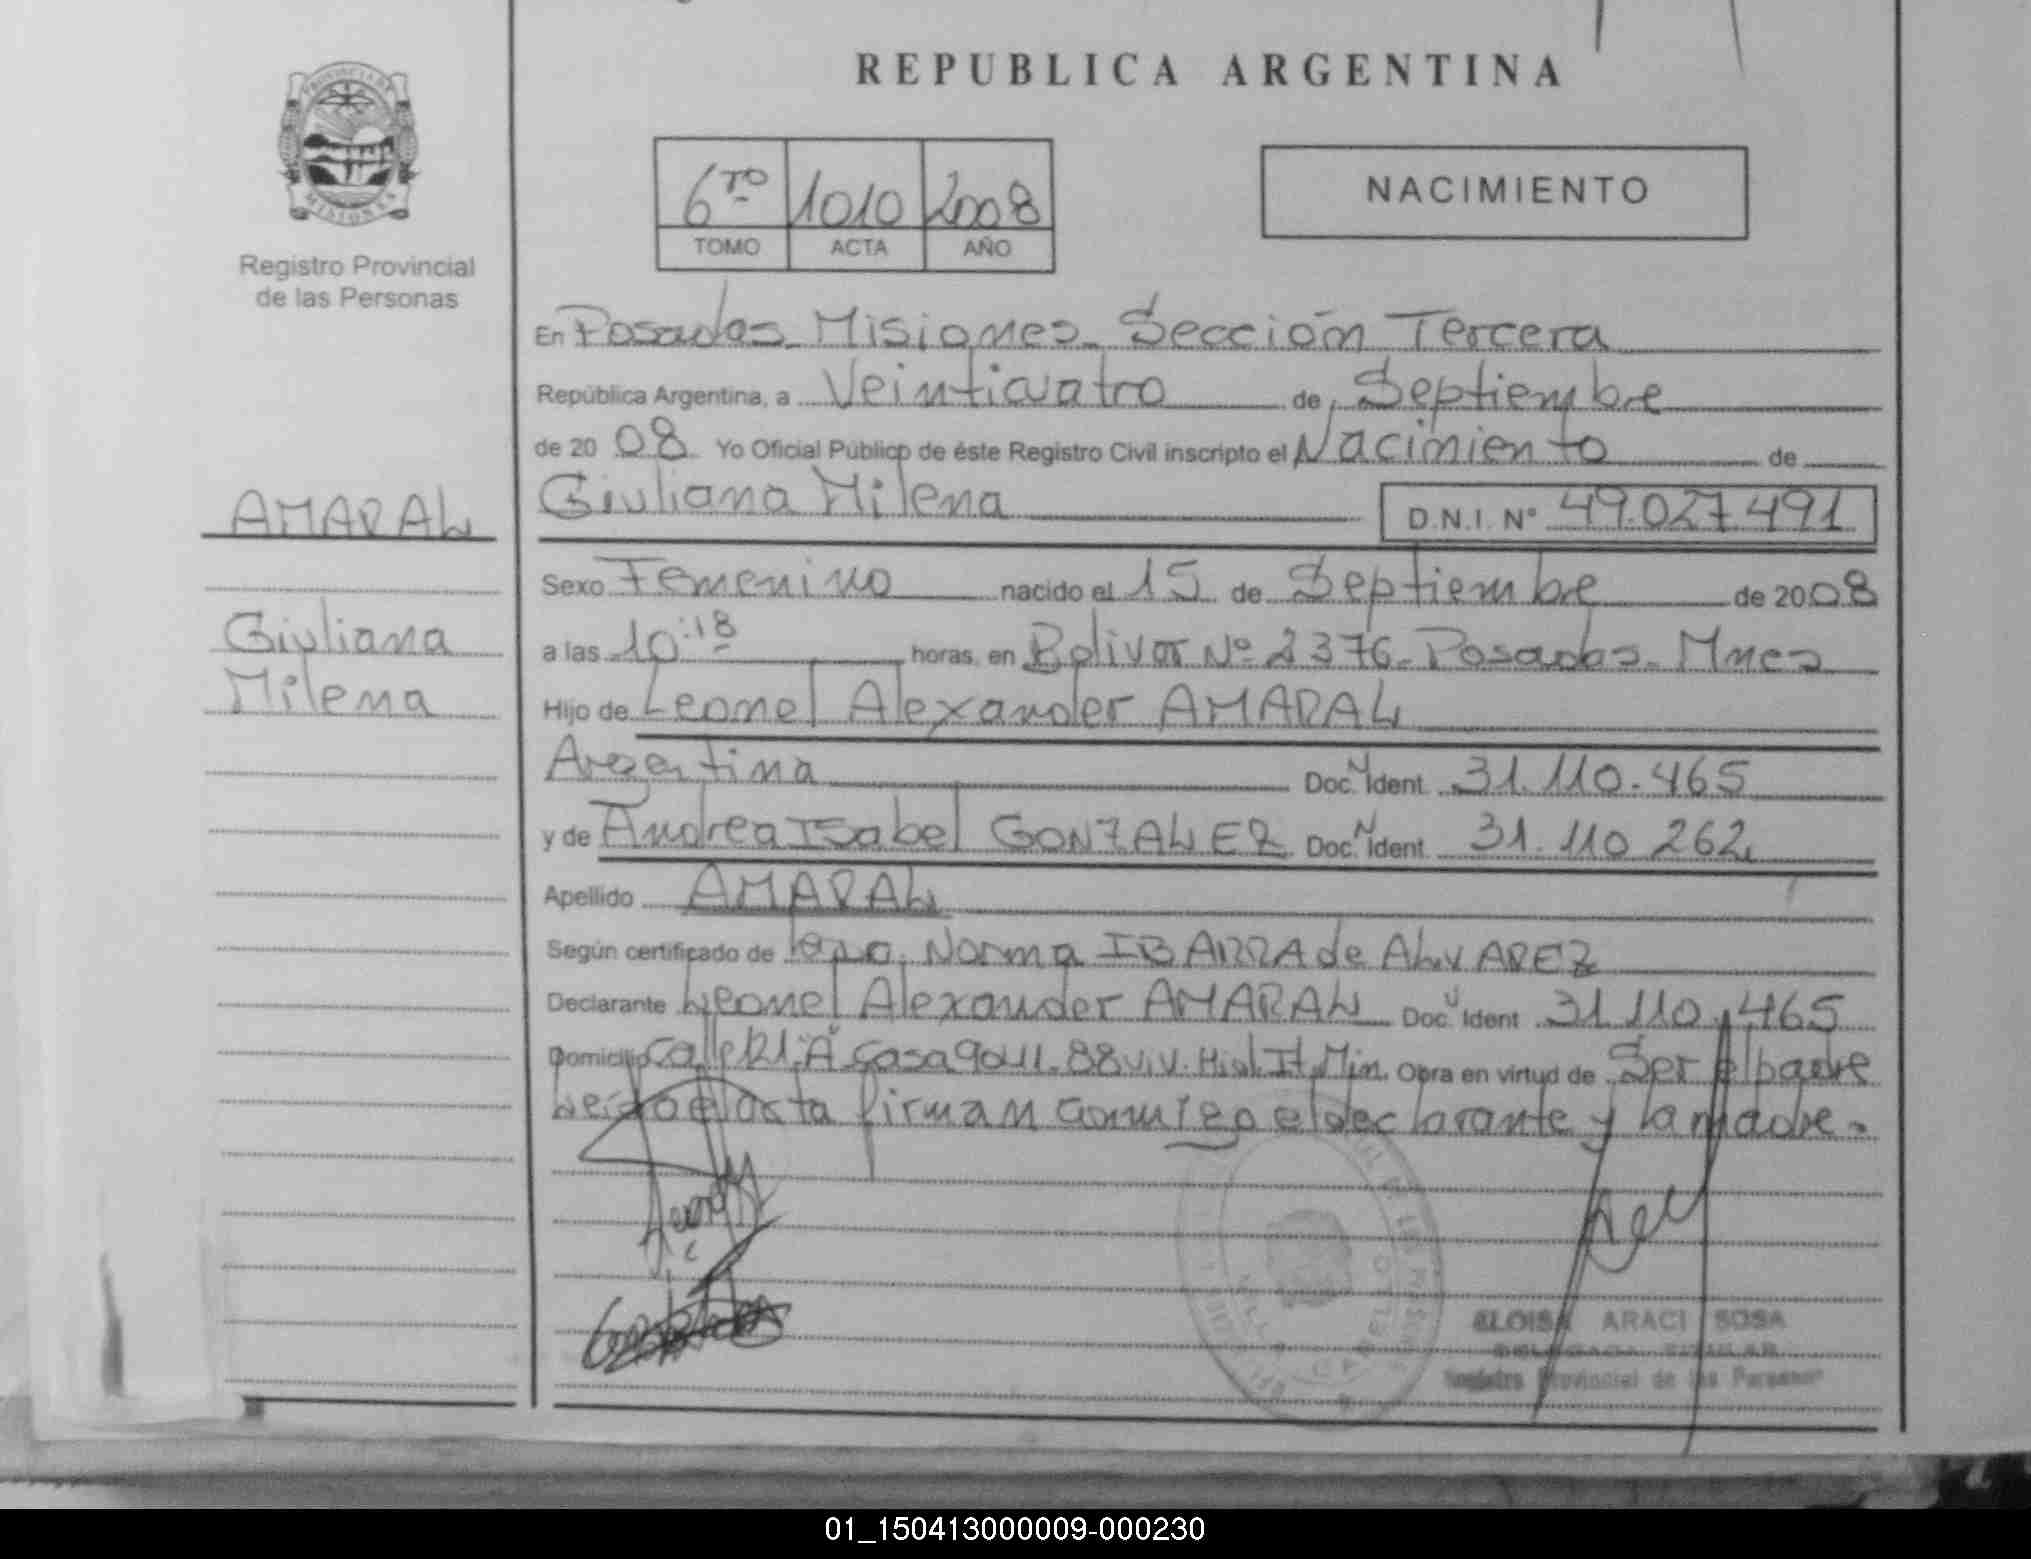 REPUBLICA ARGENTINA
PROVINCIA DE
MISIONES
Registro Provincial
de las Personas
6TO 1010 2008
TOMO ACTA AÑO
NACIMIENTO
En Posadas_Misiones_Sección Tercera
República Argentina, a Veinticuatro de Septiembre
de 2008 Yo Oficial Público de éste Registro Civil inscripto el Nacimiento de
AMARAL
Giuliana Milena D.N.I. Nº 49.027.491
Sexo Femenino nacido el 15 de Septiembre de 2008
Giuliana
Milena
a las 10:18 horas, en Bolivar Nº 2376_Posadas_Mnes
Hijo de Leonel Alexander AMARAL
Argentina Doc. N Ident. 31.110.465
y de Andrea Isabel GONZALEZ Doc. N Ident. 31.110 262
Apellido AMARAL
Según certificado de Norma IBARRA de ALVAREZ
Declarante Leonel Alexander AMARAL Doc. N Ident 31.110.465
Domicilio Calle 121."A" Casa 9041.88 viv. Min. Opra en virtud de Ser el padre
Leido el acta firman conmigo el declarante y la madre.
ELOISA ARACI SOSA
DELEGADA TITULAR
Registro Provincial de las Personas
VILLA CABELLO
01_150413000009-000230